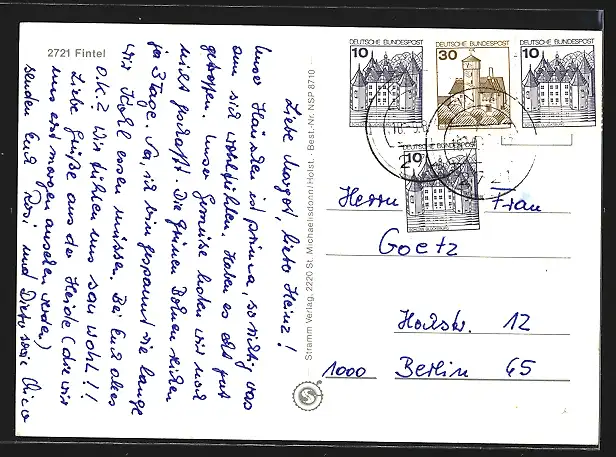 2721 Fintel
Liebe Margot, lieber Heinz!
Unser Häuschen ist prima, so richtig was
zum sich wohlfühlen. Haben es echt gut
getroffen. Unser Gemüse haben wir noch
nicht geschafft. Die grünen Bohnen reichen
ja 3 Tage. So, nun bin gespannt wie lange
wir Kohl essen müssen. Bei Euch alles
O.K.? Wir fühlen uns sau wohl!!
Liebe Grüße aus der Heide (die wir
uns erst morgen ansehen werden)
senden Euch Rosi und Dieter sowie Chico
Stramm Verlag, 2220 St. Michaelisdonn/Holst. · Best.-Nr. NSP 8710
DEUTSCHE BUNDESPOST
10
DEUTSCHE BUNDESPOST
30
DEUTSCHE BUNDESPOST
10
DEUTSCHE BUNDESPOST
10
SCHLOSS GLÜCKSBURG
Herrn Frau
Goetz
12
1000 Berlin 45